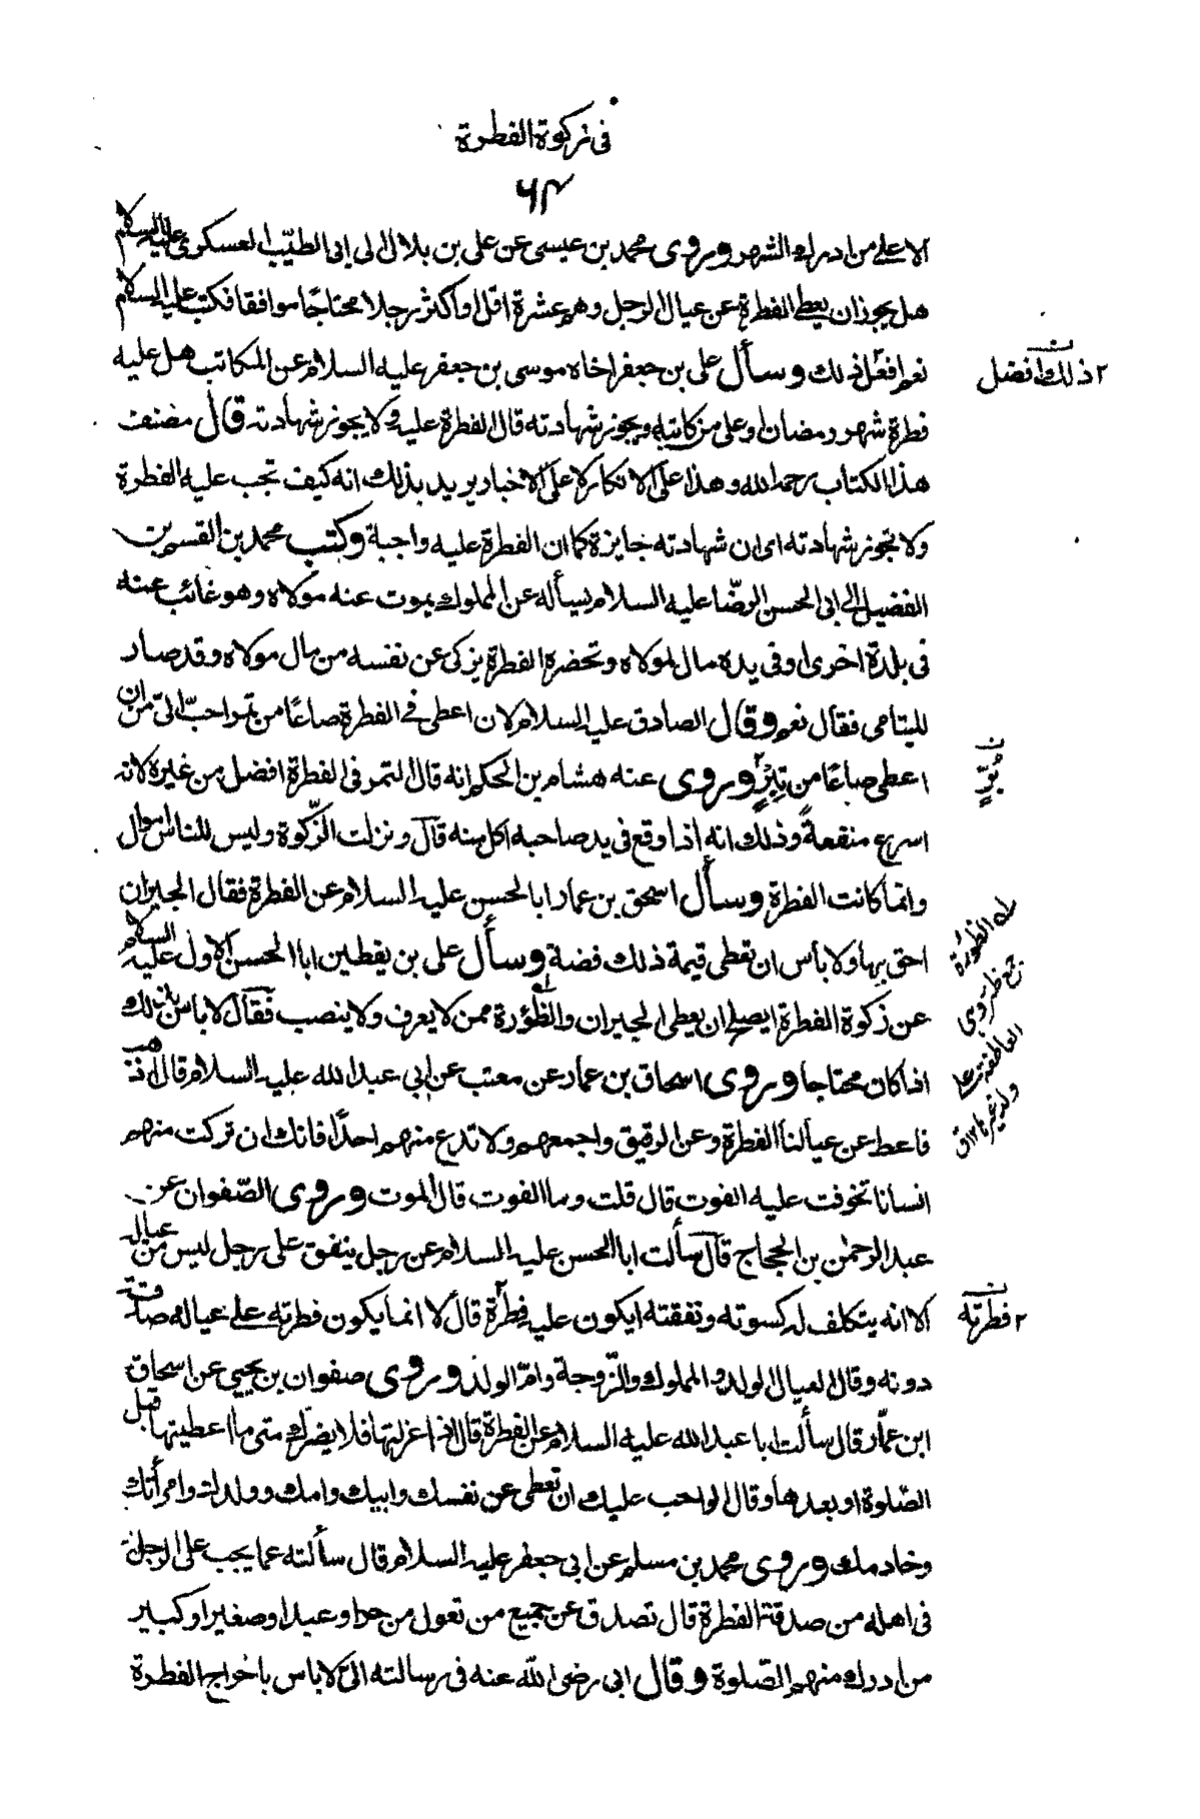 في زكوة الفطرة
٦٣
الا على من ادرك الشهر وروى محمد بن عيسى عن على بن بلال الى ابى الطيّب العسكرى عليه السلام
هل يجوز ان يعطى الفطرة عن عيال الرجل وهم عشرة اقل او اكثر رجلا محتاجًا موافقا فكتب عليه السلام
نعم افعل ذلك وسأل على بن جعفر اخاه موسى بن جعفر عليه السلام عن المكاتب هل عليه
٢ ذلك افضل
فطرة شهر رمضان او على من كاتبه ويجوز شهادته قال الفطرة عليه ولا يجوز شهادته قال مصنف
هذا الكتاب رحمه الله وهذا على الانكار لا على الاخبار يريد بذلك انه كيف تجب عليه الفطرة
ولا تجوز شهادته اى ان شهادته جايزة كما ان الفطرة عليه واجبة وكتب محمد بن القسم بن
الفضيل الى ابى الحسن الرضّا عليه السلام يسأله عن المملوك يموت عنه مولاه وهو غائب عنه
فى بلدة اخرى وفى يده مال لمولاه وتحضره الفطرة يزكى عن نفسه من مال مولاه وقد صار
لليتامى فقال نعم وقال الصادق عليه السلام لان اعطى فى الفطرة صاعًا من تمر احبّ الىّ من ان
اعطى صاعًا من تِبْرٍ وروى عنه هشام بن الحكم انه قال التمر فى الفطرة افضل من غيره لانه
ن بُرّ
اسرع منفعةً وذلك انه اذا وقع فى يد صاحبه اكل منه قال ونزلت الزّكوة وليس للناس اموال
وانما كانت الفطرة وسأل اسحق بن عمار ابا الحسن عليه السلام عن الفطرة فقال الجيران
احق بها ولا باس ان تعطى قيمة ذلك فضة وسأل على بن يقطين ابا الحسن الاول عليه السلام
عن زكوة الفطرة ايصلح ان يعطى الجيران والظُّؤرة ممن لا يعرف ولا ينصب فقال لا باس بذلك
الظؤرة
جمع ظئر وهى
العاطفة على
ولد غيرها
اذا كان محتاجا وروى اسحاق بن عمار عن معتب عن ابى عبد الله عليه السلام قال اذهب
فاعط عن عيالنا الفطرة وعن الرقيق واجمعهم ولا تدع منهم احدًا فانك ان تركت منهم
انسانا تخوفت عليه الفوت قال قلت وما الفوت قال الموت وروى الصّفوان عن
عبد الرحمٰن بن الحجاج قال سألت ابا الحسن عليه السلام عن رجل ينفق على رجل ليس من عياله
الا انه يتكلف له كسوته ونفقته ايكون عليه فطرة قال لا انما يكون فطرته على عياله صدقة
٢ فطرته
دونه وقال العيال الولد والمملوك والزّوجة وامّ الولد وروى صفوان بن يحيى عن اسحاق
ابن عمّار قال سألت ابا عبد الله عليه السلام عن الفطرة قال اذا عزلتها فلا يضرّك متى ما اعطيتها قبل
الصّلوة او بعدها وقال الواجب عليك ان تعطى عن نفسك وابيك وامك وولدك وامرأتك
وخادمك وروى محمد بن مسلم عن ابى جعفر عليه السلام قال سألته عما يجب على الرجل
فى اهله من صدقة الفطرة قال تصدق عن جميع من تعول من حر او عبد او صغير او كبير
من ادرك منهم الصّلوة وقال ابى رضى الله عنه فى رسالته الىّ لا باس باخراج الفطرة